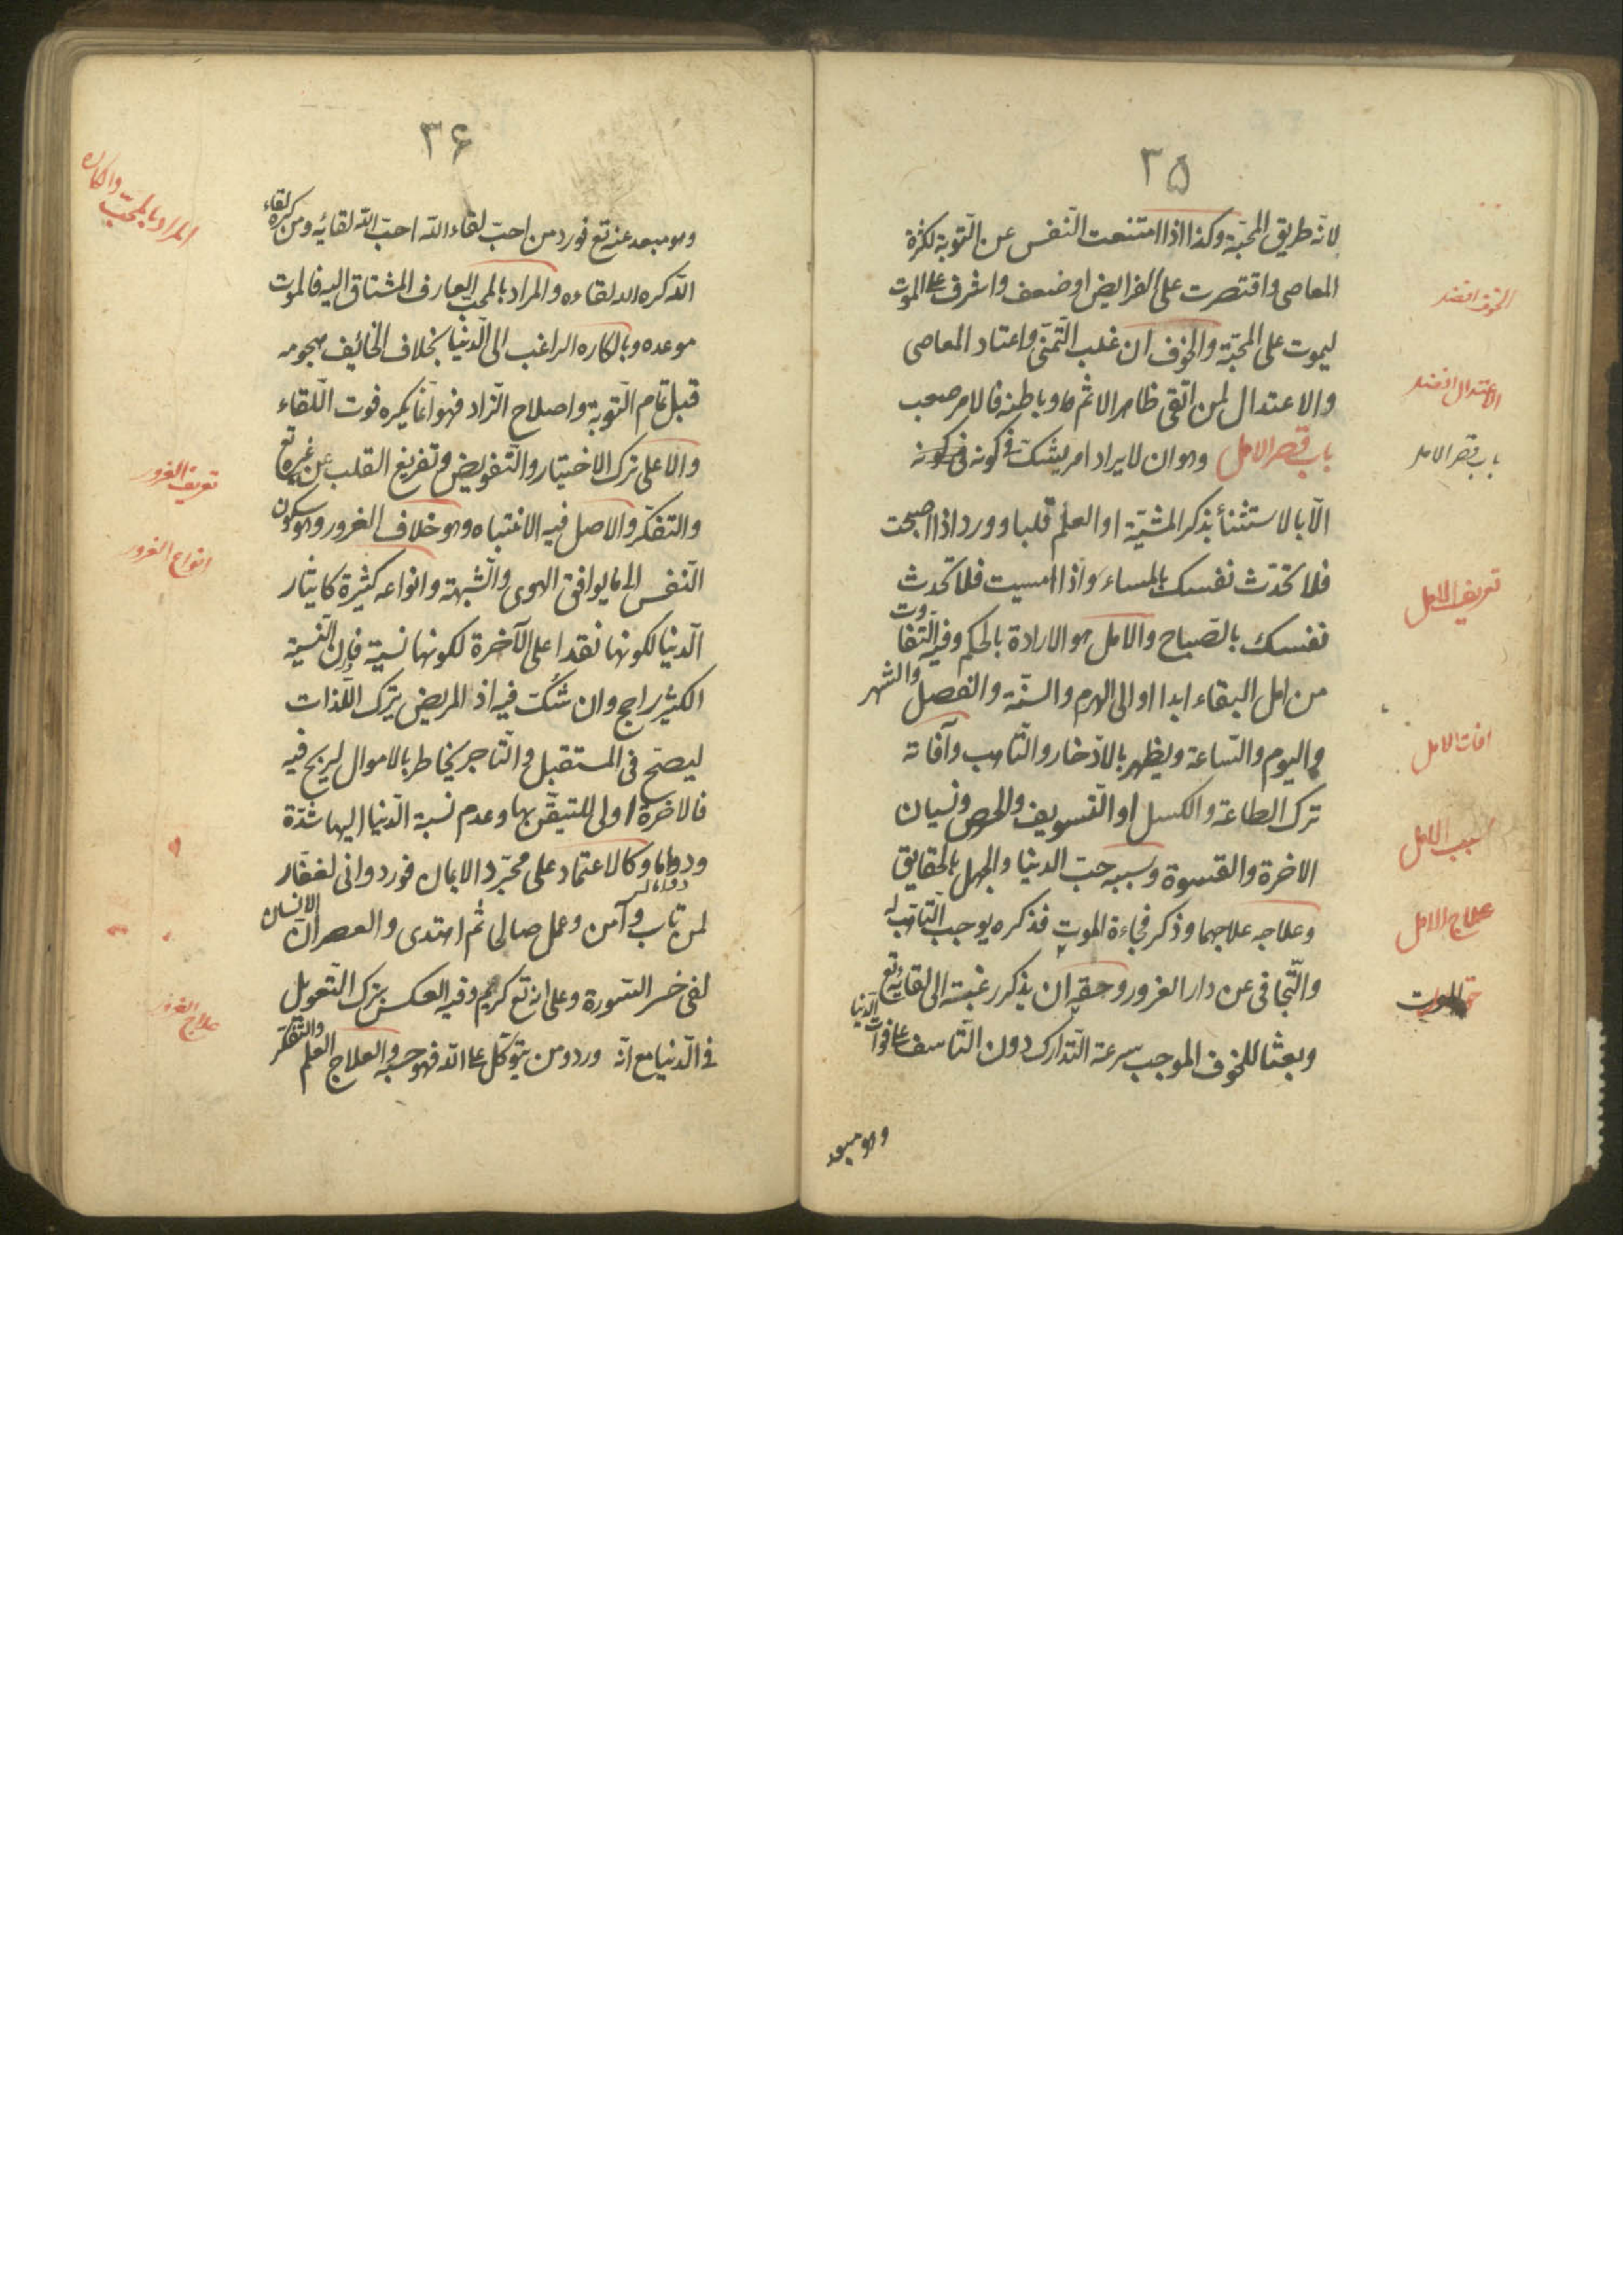 ٣۵
لانّه طريق المحبّة وكذا اذا امتنعت النّفس عن التّوبة لكثرة
المعاصى واقتصرت على الفرايض او ضعف واشرف على الموت
ليموت على المحبّة والخوف ان غلب التّمنّى واعتاد المعاصى
والاعتدال لمن اتّقى ظاهر الاثم وباطنه فالامر صعب
باب قصر الامل وهو ان لا يراد امر يشكّ فى كونه
الّا بالاستثناء بذكر المشيّة او العلم قلبا وورد اذا اصبحت
فلا تحدّث نفسك بالمساء واذا امسيت فلا تحدّث
نفسك بالصّباح والامل هو الارادة بالحكم وفيه التّفاوت
من امل البقاء ابدا او الى الهرم والسنّة والفصل والشهر
واليوم والسّاعة ويظهر بالادّخار والتّاهب وآفاته
ترك الطاعة والكسل او التّسويف والحرص ونسيان
الاخرة والقسوة وسببه حبّ الدنيا والجهل بالحقايق
وعلاجه علاجهما وذكر فجاءة الموت فذكره يوجب التّاهّب له
والتّجافى عن دار الغرور وحقّه ان يذكر رغبة الى لقايه تع
وبعثا للخوف الموجب سرعة التّدارك دون التّاسف على فوات الدّنيا
وهو مبعد
الخوف افضل
الاعتدال افضل
باب قصر الامل
تعريف الامل
افات الامل
سبب الامل
علاج الامل
الموت
٣۶
وهو مبعد عنه تع فورد من احبّ لقاء اللّه احبّ اللّه لقائه ومن كره لقاء
اللّه كره اللّه لقاءه والمراد بالمحبّ العارف المشتاق اليه فالموت
موعده وبالكاره الراغب الى الدّنيا بخلاف الخائف هجومه
قبل تمام التّوبة واصلاح الزّاد فهو انّما يكره فوت اللّقاء
والاعلى ترك الاختيار والتّفويض وتفريغ القلب عن غيره تع
والتفكّر والاصل فيه الانتباه وهو خلاف الغرور وهو سكون
النّفس الى ما يوافق الهوى والشّبهة وانواعه كثيرة كايثار
الدّنيا لكونها نقدا على الآخرة لكونها نسية فان النّسية
الكثير راجح وان شكّ فيه اذ المريض يترك اللّذات
ليصحّ فى المستقبل والتّاجر يخاطر بالاموال ليربح فيه
فالاخرة اولى للتيقّن بها وعدم نسبة الدّنيا اليها شدّة
ودواما وكالاعتماد على مجرّد الايمان فورد وانى لغفّار
لمن تاب وآمن وعمل صالحا ثم اهتدى والعصر انّ الانسان
لفى خسر السّورة وعلى انه تع كريم وفيه العكس بترك التّعويل
فى الدّنيا مع انّه ورد ومن يتوكّل على اللّه فهو حسبه والعلاج العلم والتفكّر
المراد بالمحبّ والكاره
تعريف الغرور
انواع الغرور
علاج الغرور